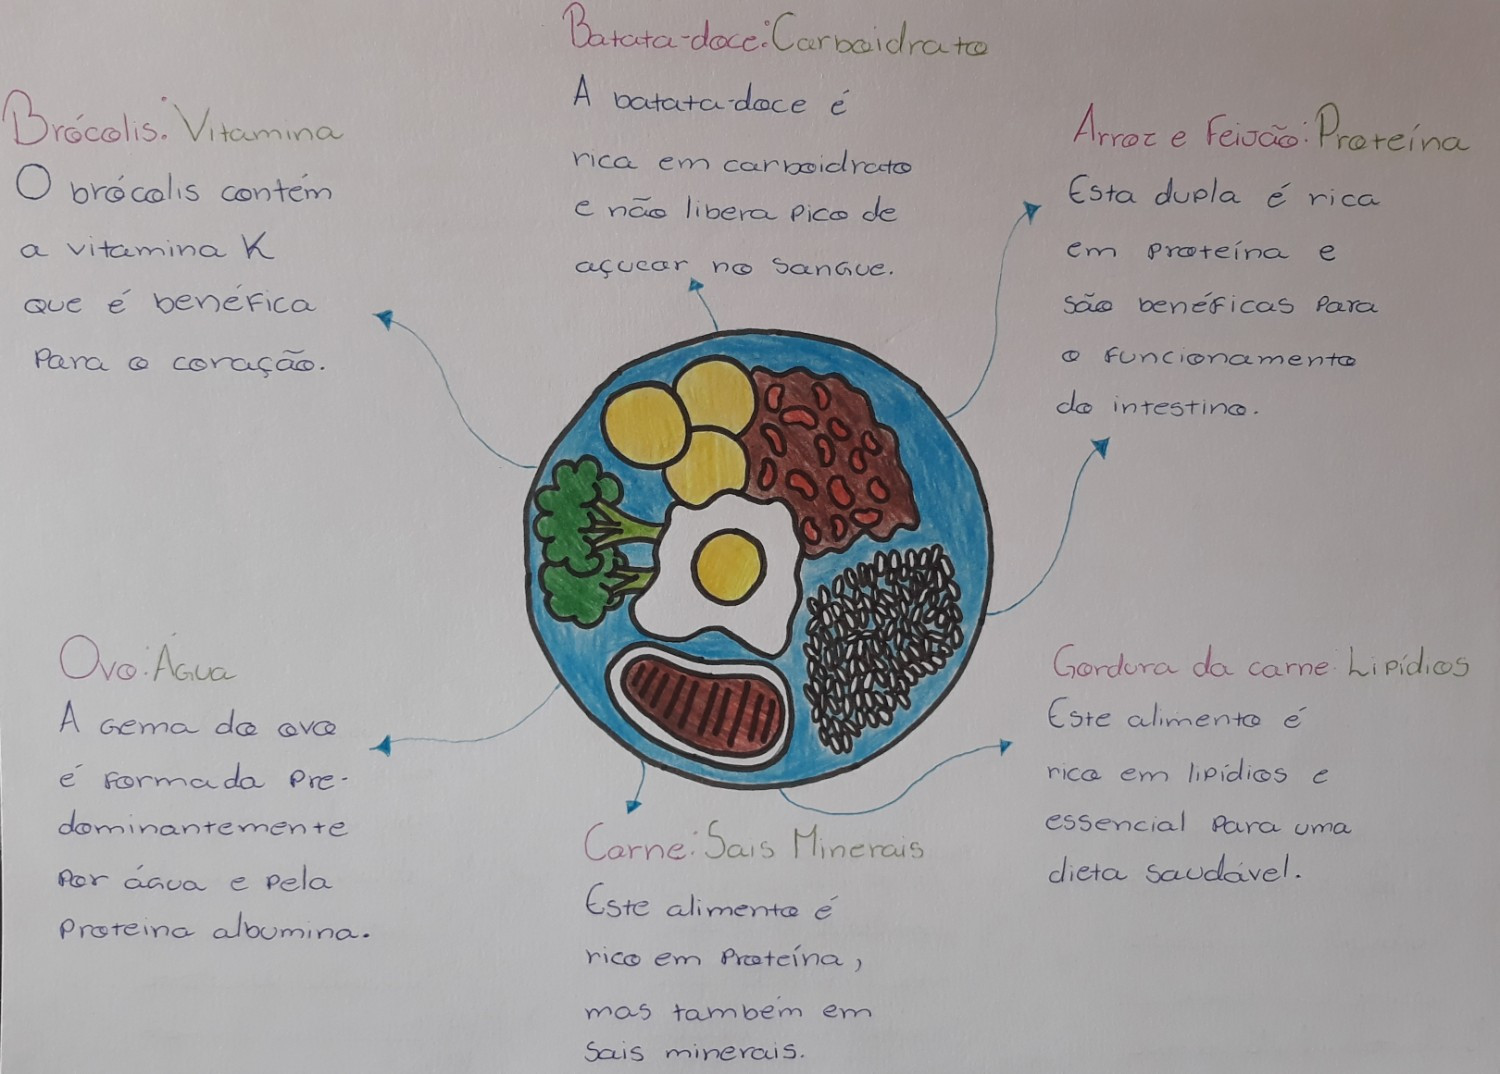 Batata-doce: Carboidrato
A batata-doce é
rica em carboidrato
e não libera pico de
açucar no sangue.
Brócolis: Vitamina
O brócolis contém
a vitamina K
que é benéfica
para o coração.
Arroz e Feijão: Proteína
Esta dupla é rica
em proteína e
são benéficas para
o funcionamento
do intestino.
Ovo: Água
A gema do ovo
é formada pre-
dominantemente
por água e pela
proteina albumina.
Carne: Sais Minerais
Este alimento é
rico em proteína,
mas também em
sais minerais.
Gordura da carne: Lipídios
Este alimento é
rico em lipídios e
essencial para uma
dieta saudável.